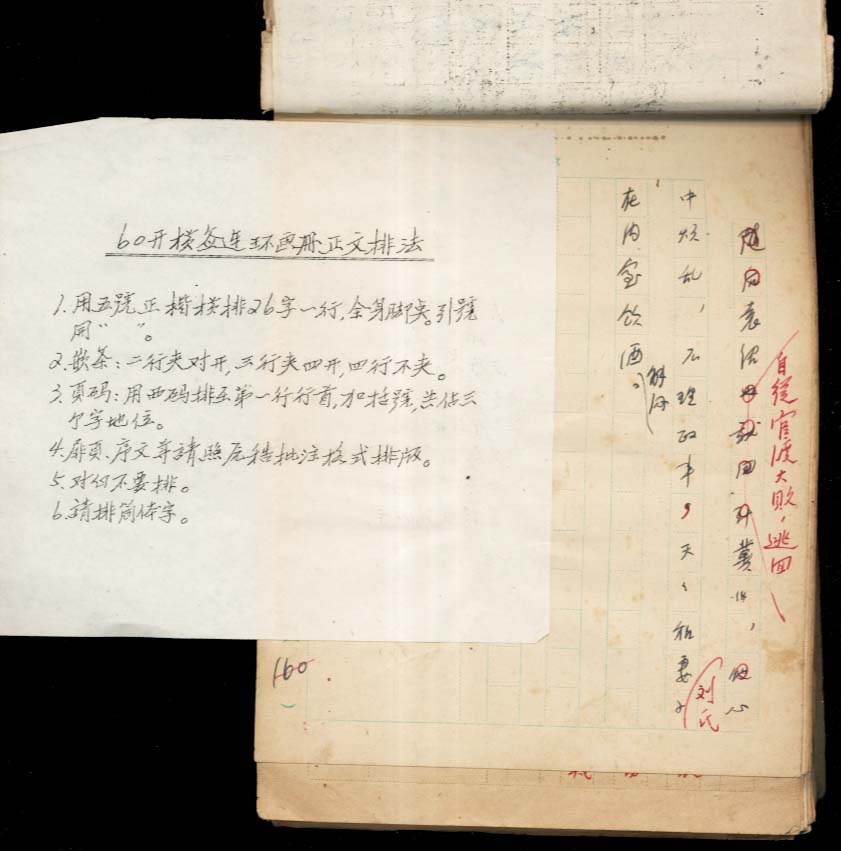 60开横条连环画册正文排法
1. 用五號正楷横排26字一行,全身脚点。引號
用“ ”。
2. 嵌条:二行夹对开,三行夹四开,四行不夹。
3. 页码:用西码排至第一行行首,加括號,共佔三
个字地位。
4. 扉页、序文等請照原稿批注格式排版。
5. 对白不要排。
6. 請排简体字。
自從官渡大敗,逃回
袁绍 回 冀州, 心
中烦乱,不理政事,天天和妻子
刘氏
在内室饮酒
解闷
160